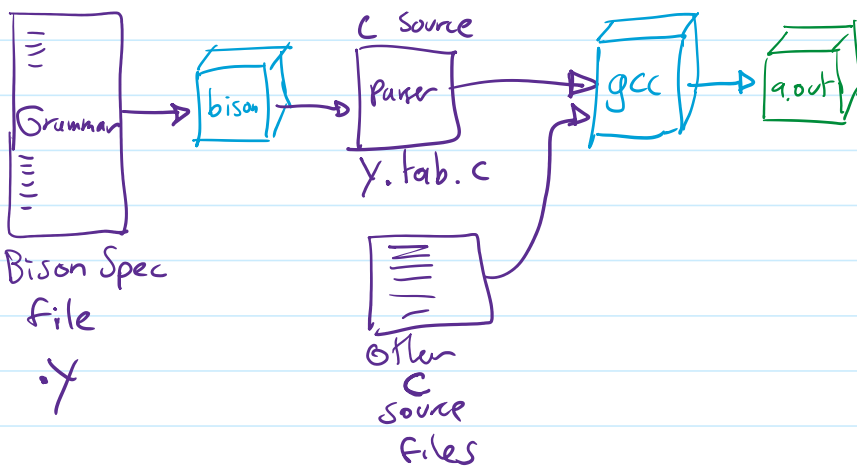 Grammar
Bison Spec
file
.y
bison
C Source
Parser
y.tab.c
other
C
source
files
gcc
a.out